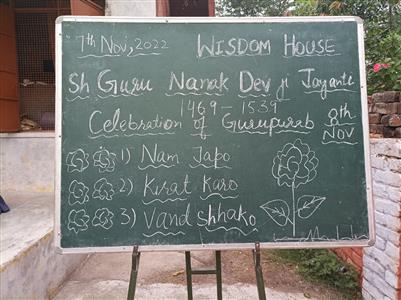 7th Nov, 2022 WISDOM HOUSE
Sh Guru Nanak Dev ji Jayanti
1469-1539
Celebration of Gurupurab 8th NOV
1) Nam Japo
2) Kirat Karo
3) Vand Shhako